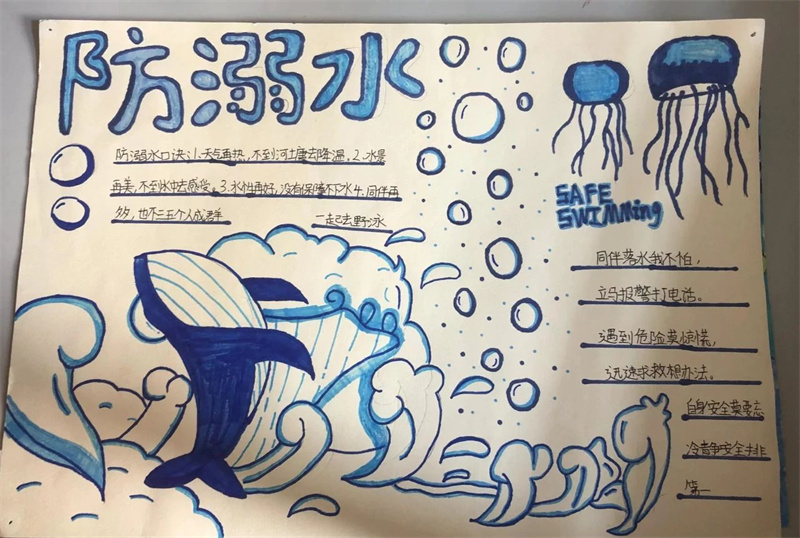 防溺水
防溺水口诀:1.天气再热,不到河土库去降温,2.水景
再美,不到水中去感受。3.水性再好,没有保障不下水4.同伴再
多,也不三五个人成群
一起去野泳
SAFE
SWIMMing
同伴落水我不怕,
立马报警打电话。
遇到危险莫惊慌,
迅速求救想办法。
自身安全莫要忘
冷静安全排
第一